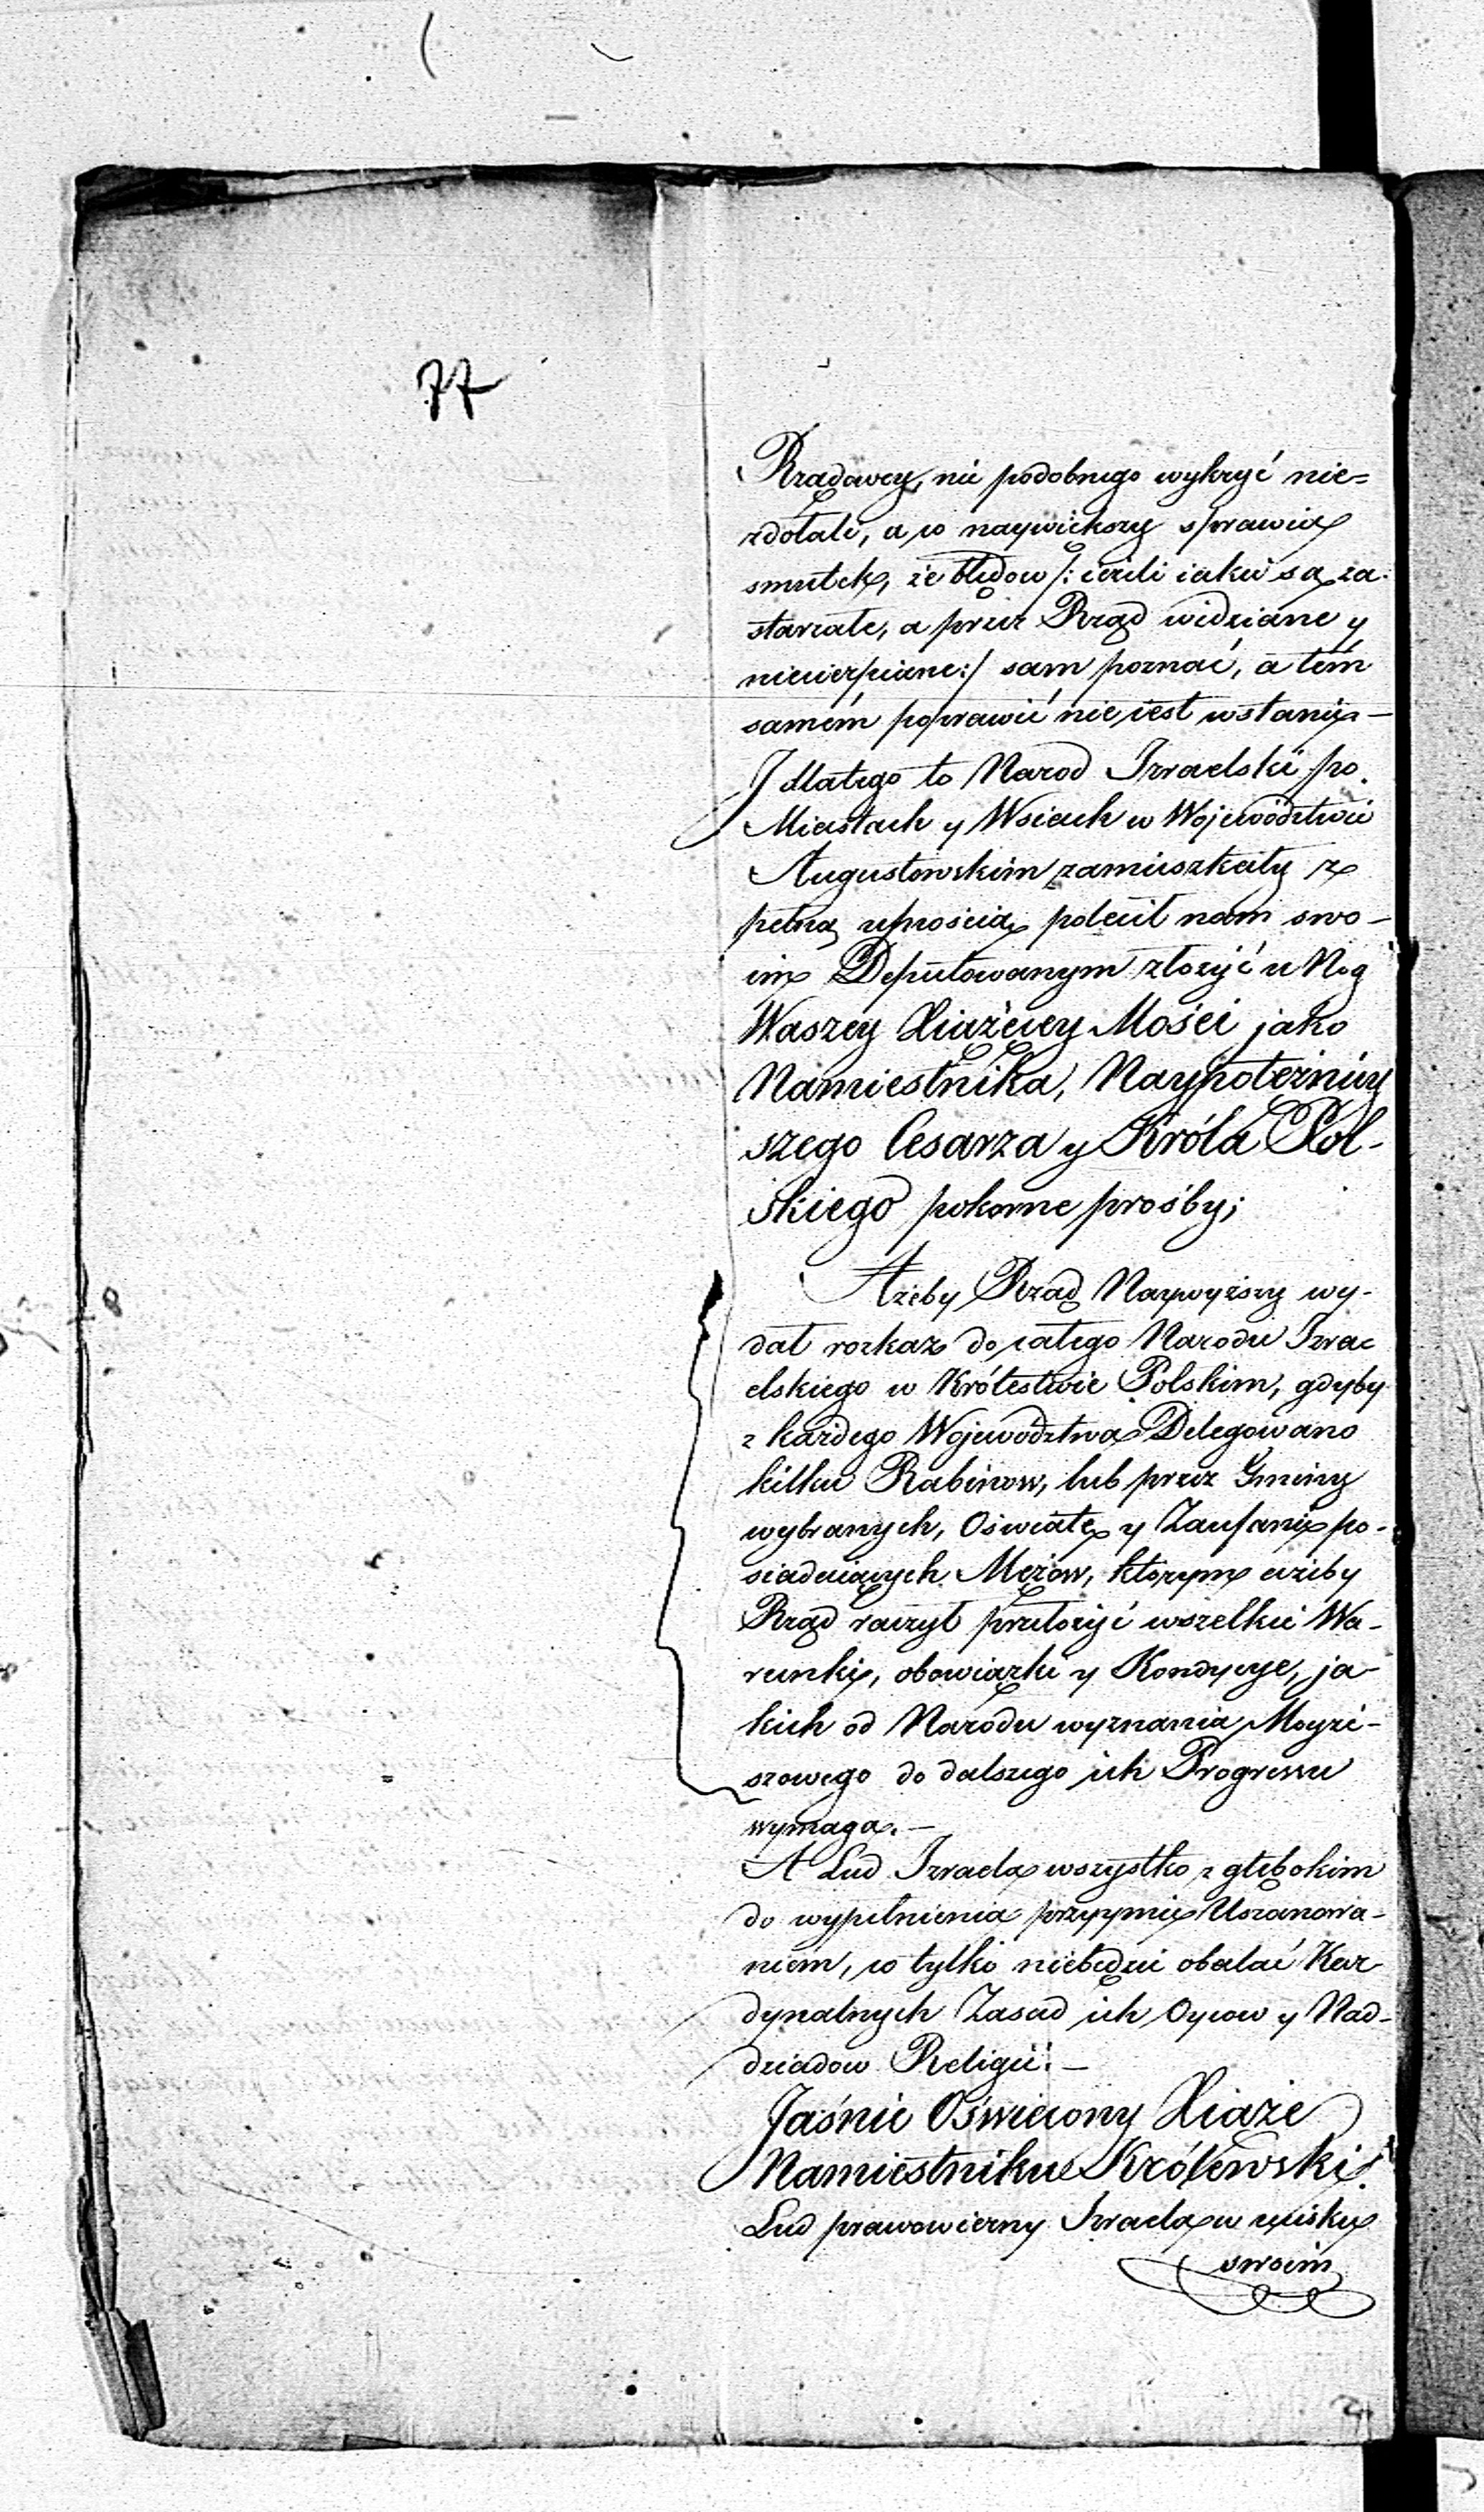 77
Rządowcy, nic podobnego wykryć nie=
zdołali, a co naywiększy sprawia
smutek, że błędow /: ieżeli iakie są za-
starzałe, a przez Rząd widziane y
niecierpiane :/ sam poznać, a tém
samém poprawić nie iest wstanie –
I dlatego to Narod Izraelski po
Miastach y Wsiach w Województwie
Augustowskim zamieszkały z
pełną ufnością polecił nam swo-
im Deputowanym złożyć u Nog
Waszey Xiążęcey Mości jako
Namiestnika, Naypotężniey
szego Cesarza y Króla Pol-
skiego pokorne prośby;
Ażeby Rząd Naywyższy wy-
dał rozkaz do całego Narodu Izrae
elskiego w Królestwie Polskim, gdyby
z każdego Województwa Delegowano
kilku Rabinow, lub przez Gminy
wybranych, Oświatę y Zaufanie po-
siadaiących Mężow, ktorym ażeby
Rząd raczył przełożyć wszelkie Wa-
runki, obowiązki y Kondycye, ja-
kich od Narodu wyznania Moyże-
szowego do dalszego ich Progressu
wymaga. –
A Lud Izraela wszystko z głębokim
do wypełnienia przyymie Uszanowa-
niem, co tylko niebędzie obalać Kar
dynalnych Zasad ich Oycow y Nad-
dziadow Religii. –
Jaśnie Oświecony Xiąże
Namiestniku Królewski!
Lud prawowierny Izraela w ucisku
swoim